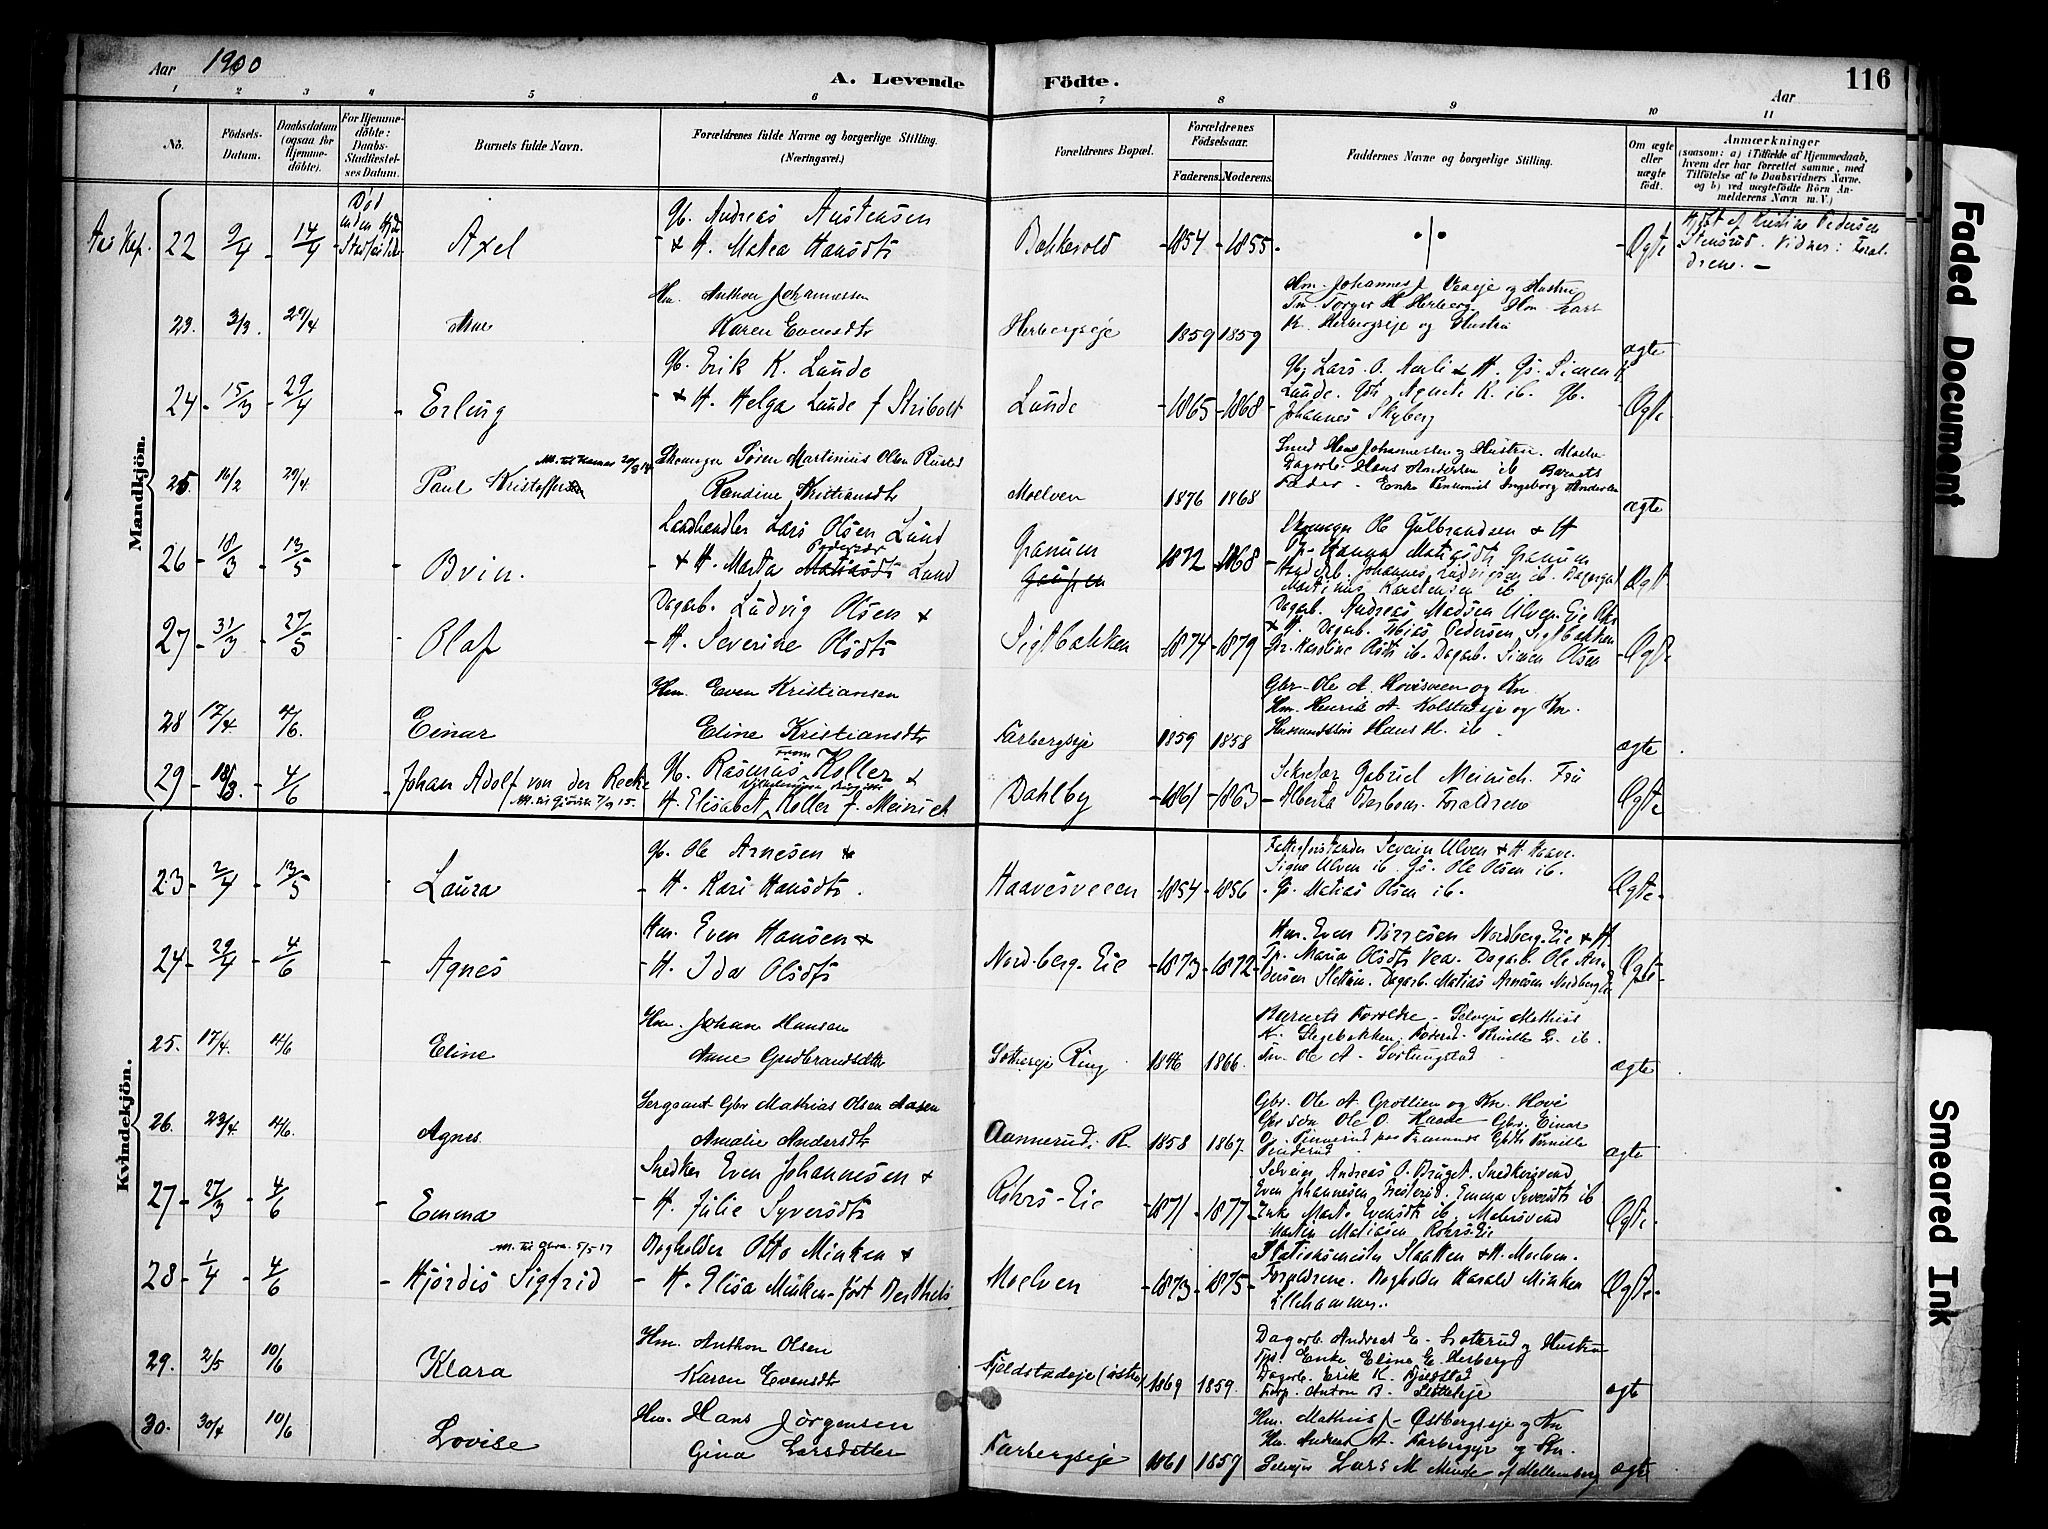 Aar 1900
A. Levende Födte.
116
Aar
1 2 3 4 5 6 7 8 9 10 11
No.
Födsels-Datum.
Daabsdatum (ogsaa for Hjemmedöbte).
For Hjemmedöbte: Daabs-Stadfæstelses Datum.
Barnets fulde Navn.
Forældrenes fulde Navne og borgerlige Stilling. (Næringsvei.)
Forældrenes Bopæl.
Forældrenes Födselsaar.
Faderens. Moderens.
Faddernes Navne og borgerlige Stilling.
Om ægte eller uægte födt.
Anmærkninger
(saasom: a) i Tilfælde af Hjemmedaab, hvem der har forrettet samme, med Tilföielse af to Daabsvidners Navne, og b) ved uægtefödte Börn Anmelderens Navn m. V.)
Mandkjön.
Aas Kap. 22 9/4 - 14/4 Död uden
Axel
Gb. Andreas Austensen
+ H. Matea Hansdtr
Bakkerold 1854 - 1855
Ægte
Stensrud. Vidner: Foræl-
drene. —
23. 3/3. 29/4
Hm. Anthon Johannessen
Karen Evensdtr
Herbergseje 1859 1859
Hm. Johannes J. Veaeje og Hustru
Tm. Torger H. Herberg. Hm. Lars
K. Herbergseje og Hustru
ægte
24 - 15/3 - 29/4
Erling
Gb. Erik K. Lunde
+ H. Helga Lunde f. Stribolt
Lunde 1865 - 1868
Gb. Lars O. Narli & H. Gs. Simen K.
Lunde. Gdt. Agnete K. ib. Gb.
Johannes Skyberg
Ægte
25 16/2 29/4
Paul Kristoffer
Skomager Sören Martinius Olsen Rusted
Randine Kristiansdtr
Moelven 1876 1868
Smed Hans Johannessen og Hustru. Moelv
Dagarb. Hans Andersen ib Barnets
Fader. Enke Ingeborg Andersen
ægte
26 - 18/3 - 13/5
Landhandler Lars Olsen Lund
+ H. Marta Pedersdtr Lund
Granum 1872 - 1868
Skomager Ole Gulbrandsen & H
Hanna Matiasdtr Granum
Johannes Ludvigsen ib. Dagarb.
Martinus Karstensen ib
Ægte
27 - 31/3 - 27/5
Olaf
Dagarb. Ludvig Olsen +
H. Severine Olsdtr
Sigtbakken 1874 - 1879
Dagarb. Andreas Madsen Ulven Eie
+ H. Dagarb. Tobias Pedersen Sigtbakken
Karoline Olsdtr ib. Dagarb. Simen Olsen
Ægte
28 17/4 4/6.
Einar
Hm. Even Kristiansen
Eline Kristiansdtr
Farbergseje 1859 1858
Gbr. Ole A. Hovisveen og Kn
Hm. Henrik A. Kolstadeje og Kn.
Husmandssön Hans H. ib.
ægte
29 - 18/3. - 4/6
Johan Adolf von der Recke
Gb. Rasmus Koller +
H. Elisabet Koller f. Meinich
Dahlby 1861 - 1863
Sekretær Gabriel Meinich. Fru
Alberta Forældrene
Ægte
Kvindekjön.
23 - 2/4 - 13/5
Laura
Gb. Ole Arnesen +
H. Kari Hansdtr.
Haavesveeen 1854 - 1856
Fattigforstander Severin Ulven & H.
Signe Ulven ib. Gs. Ole Olsen ib.
Gs. Matias Olsen ib.
Ægte
24 - 29/4 - 4/6
Agnes
Hm. Even Hansen +
H. Ida Olsdtr
Nordberg-Eie 1873 - 1872
Hm. Even Börresen Nordberg-Eie & H
Tp. Maria Olsdtr Vea. Dagarb. Ole An-
dersen Slettum. Dagarb. Matias Arnesen Nordberg
Ægte
25. 17/4. 4/6
Eline
Hm. Johan Hansen
Anne Gudbrandsdtr
Ring 1846 1866.
Barnets Forældre - Selvejer Mathias
K. Stegebakken. Pernille ib.
Ole A. Sortungstad
ægte
26. 23/4. 4/6.
Agnes
Sergeant Gbr Mathias Olsen Aasen
Amalie Andersdtr
Aannerud i R. 1858 1867
Gbr. Ole A. Grotlien og Kn. Hove
Gbr sön Ole O. Haave Gbr. Einar
ægte
27 - 27/3 - 4/6
Emma
Snedker Even Johannesen +
H. Julie Syversdtr
Rohrs-Eie 1871 - 1877
Selveier Andreas O. Bruget. Snedkersvend
Even Johannesen Emma Syversdtr ib
Enke Marte Evensdtr ib. Malersvend
Martin Matiasen Rohrs-Eie
Ægte
28 - 1/4 - 4/6
Hjördis Sigfrid
Bogholder Otto Minken +
H. Elisa Minken född Berthels
Moelven 1873 - 1875
Stationsmester Slaatten & H. Moelven.
Forældrene. Bogholder Harald Minken
Lillehammer.
Ægte
29. 2/5 10/6
Klara
Hm. Anthon Olsen
Karen Evensdtr
Fjeldstadeje (östre) 1869 1859.
Dagarb. Andreas E. Loterud og Hustru
Enke Eline E. Herberg
Dagarb. Erik K. Fjeldstad
Anton B.
ægte
30. 30/4 10/6
Lovise
Hm. Hans Jörgensen
Gina Larsdatter
Farbergseje 1861 1857
Hm. Mathias J. Östbergseje og Kn
Hm. Andreas A. Farbergeje og Kn.
Selvejer Lars M. Minde af Mellemberg
ægte
Faded Document
Smeared Ink